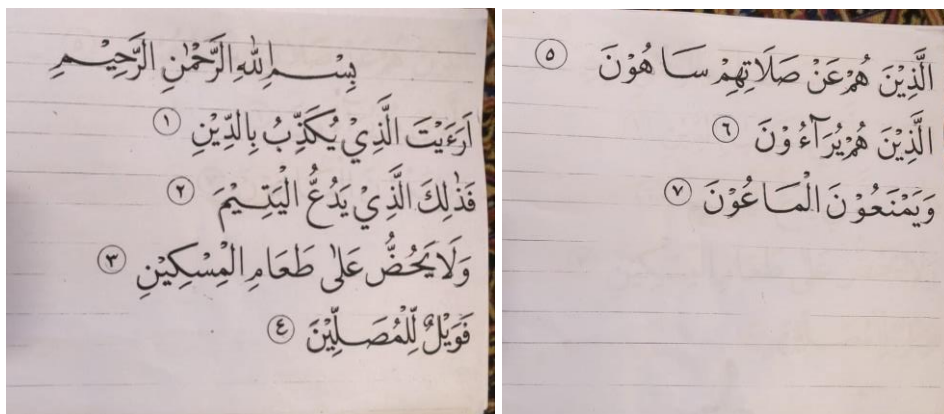 بِسْمِ اللّٰهِ الرَّحْمٰنِ الرَّحِيْمِ
اَرَءَيْتَ الَّذِيْ يُكَذِّبُ بِالدِّيْنِ ١
فَذٰلِكَ الَّذِيْ يَدُعُّ الْيَتِيْمَ ٢
وَلَا يَحُضُّ عَلٰى طَعَامِ الْمِسْكِيْنِ ٣
فَوَيْلٌ لِّلْمُصَلِّيْنَ ٤
الَّذِيْنَ هُمْ عَنْ صَلَاتِهِمْ سَاهُوْنَ ٥
الَّذِيْنَ هُمْ يُرَآءُوْنَ ٦
وَيَمْنَعُوْنَ الْمَاعُوْنَ ٧